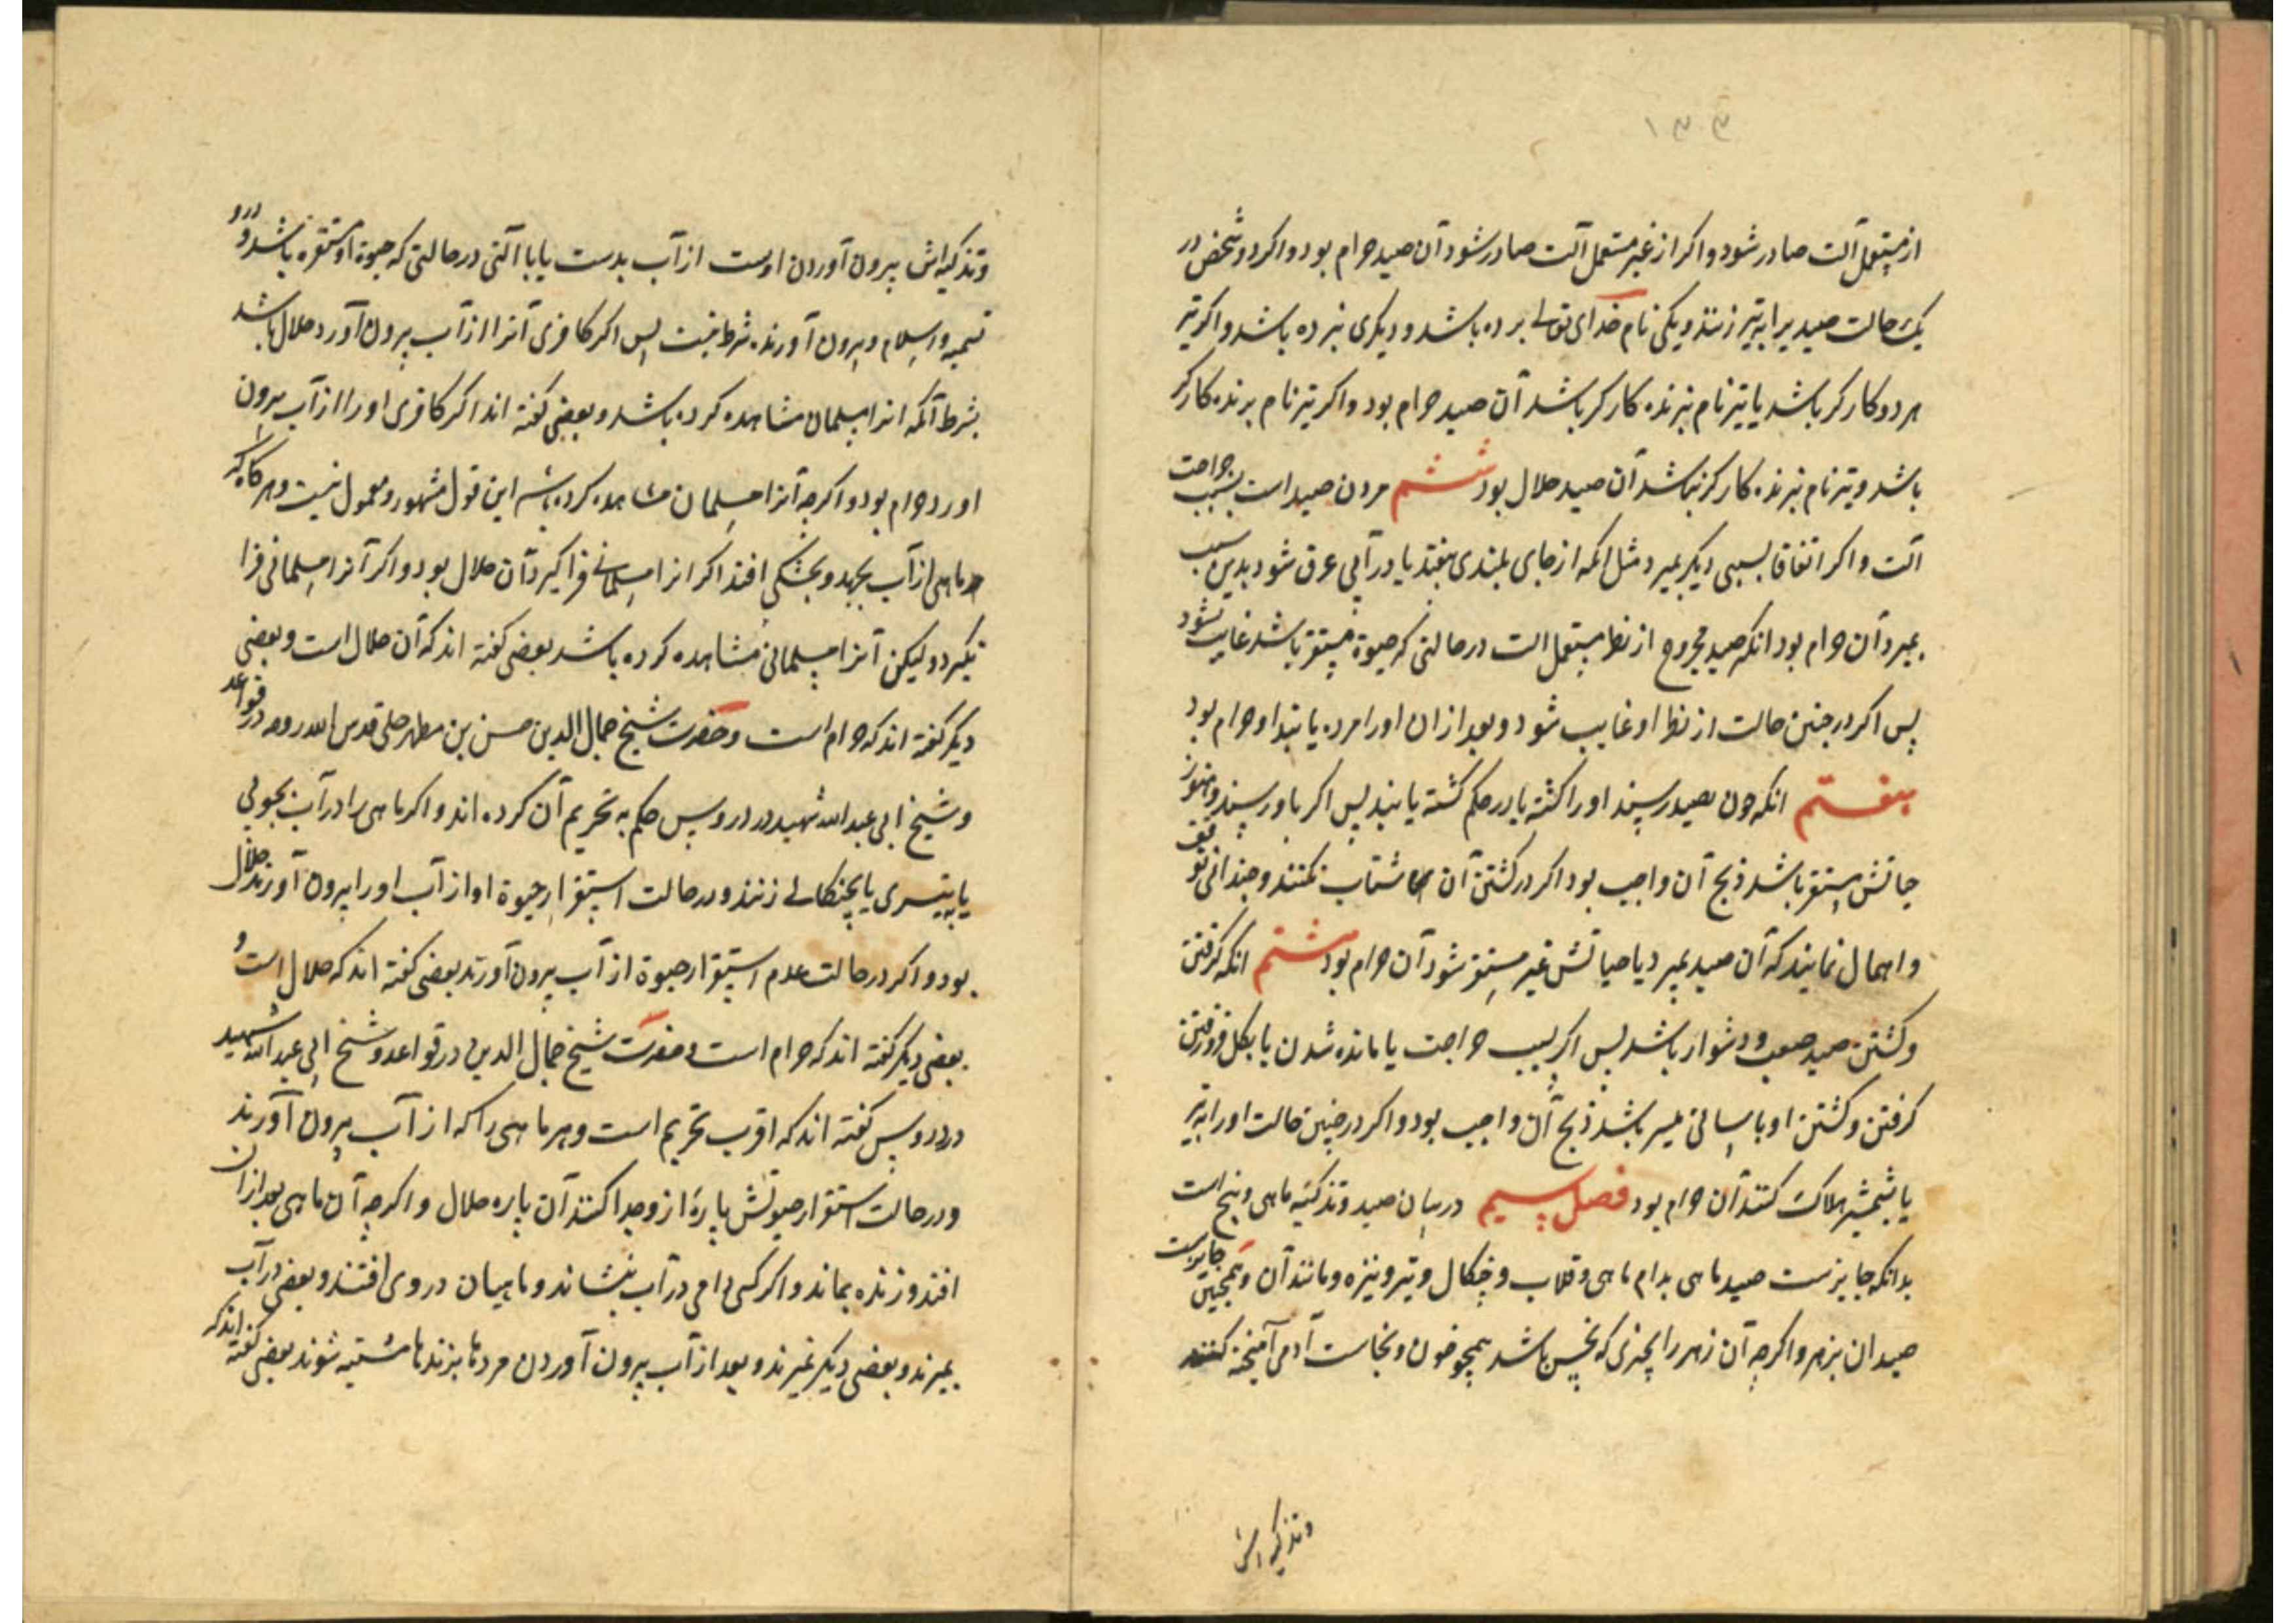 ۱۳۳
از مستعمل آلت صادر شود و اگر از غیر مستعمل آلت صادر شود آن صید حرام بود و اگر دو شخص در
یک حالت صید را به تیر زنند و یکی نام خدای تعالی برده باشد و دیگری نبرده باشد و اگر تیر
هر دو کارگر باشد یا تیر نام نبرنده کارگر باشد آن صید حرام بود و اگر تیر نام برنده کارگر
باشد و تیر نام نبرنده کارگر نباشد آن صید حلال بود ششم مردن صید است بسبب جراحت
آلت و اگر اتفاقا بسببی دیگر بمیرد مثل آنکه از جای بلندی بیفتد یا در آبی غرق شود بدین سبب
بمیرد آن حرام بود آنکه صید مجروح از نظر مستعمل الت در حالتی که حیوة مستقر باشد غایب نشود
پس اگر در چنین حالت از نظر او غایب شود و بعد از ان او را مرده یابند او حرام بود
هفتم انکه چون بصید رسند او را کشته یا در حکم کشته یابند پس اگر باو رسند و هنوز
حیاتش مستقر باشد ذبح آن واجب بود اگر در کشتن آن شتاب نکنند و چندانی توقف
و اهمال نمایند که آن صید بمیرد یا حیاتش غیر مستقر شود آن حرام بود هشتم انکه گرفتن
و کشتن صید صعب و دشوار باشد پس اگر بسبب جراحت یا مانده شدن یا بگل فرو رفتن
گرفتن و کشتن او باسانی میسر باشد ذبح آن واجب بود و اگر در چنین حالت او را به تیر
یا شمشیر هلاک کنند آن حرام بود فصل سیم در بیان صید و تذکیه ماهی و ملخ است
بدانکه جایزست صید ماهی بدام ماهی و قلاب و چنگال و تیر و نیزه و مانند آن و همچنین جایزست
صید ان بزهر و اگرچه آن زهر را بچیزی که نجس باشد همچو خون و نجاست آدمی آمیخته کنند
و تذکیه اش
و تذکیه اش بیرون آوردن اوست از آب بدست یا با آلتی در حالتی که حیوة او مستقره باشد و درو
تسمیه و اسلام بیرون آورنده شرط نیست پس اگر کافری آنرا از آب بیرون آورد حلال باشد
بشرط آنکه انرا مسلمان مشاهده کرده باشد و بعضی گفته اند اگر کافری او را از آب بیرون
آورد حرام بود و اگرچه آنرا مسلمان مشاهده کرده باشد این قول مشهور و معمول نیست و هرگاه که
ماهی از آب بجهد و بخشکی افتد اگر انرا مسلمانی فرا گیرد آن حلال بود و اگر آنرا مسلمانی فرا
نگیرد و لیکن آنرا مسلمانی مشاهده کرده باشد بعضی گفته اند که آن حلال است و بعضی
دیگر گفته اند که حرام است و حضرت شیخ جمال الدین حسن بن مطهر حلی قدس الله روحه در قواعد
و شیخ ابی عبد الله شهید در دروس حکم به تحریم آن کرده اند و اگر ماهی را در آب بچوبی
یا به تیری یا بچنگالی زنند و در حالت استقرار حیوة او از آب او را بیرون آورند حلال
بود و اگر در حالت عدم استقرار حیوة از آب بیرون آورند بعضی گفته اند که حلال است و
بعضی دیگر گفته اند که حرام است و حضرت شیخ جمال الدین در قواعد و شیخ ابی عبد الله شهید
در دروس گفته اند که اقرب تحریم است و هر ماهی را که از آب بیرون آورند
و در حالت استقرار حیوتش پارۀ از و جدا کنند آن پاره حلال و اگرچه آن ماهی بعد از ان در آب
افتد و زنده بماند و اگر کسی دامی در آب بنشاند و ماهیان در وی افتند و بعضی در آب
بمیرند و بعضی دیگر نمیرند و بعد از آب بیرون آوردن مرده با زنده مشتبه شوند بعضی گفته اند که